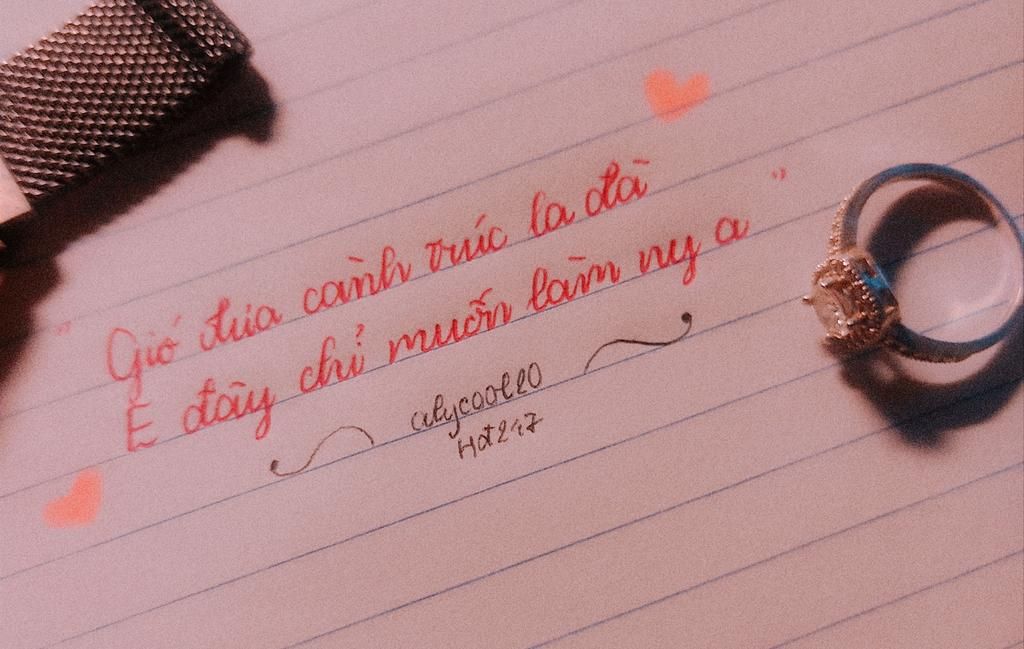 " Gió đưa cành trúc la đà
E đây chỉ muốn làm ny a "
alycool20
Hot247